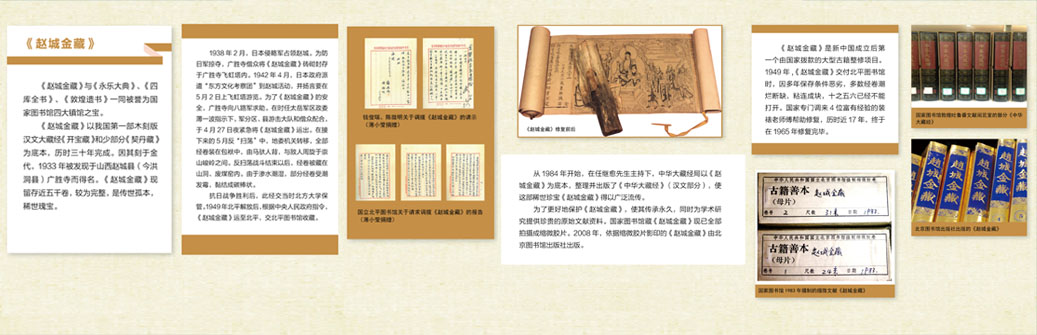 《赵城金藏》
《赵城金藏》与《永乐大典》、《四
库全书》、《敦煌遗书》一同被誉为国
家图书馆四大镇馆之宝。
《赵城金藏》以我国第一部木刻版
汉文大藏经《开宝藏》和少部分《契丹藏》
为底本，历时三十年完成。因其刻于金
代，1933年被发现于山西赵城县（今洪
洞县）广胜寺而得名。《赵城金藏》现
留存近五千卷，较为完整，是传世孤本，
稀世瑰宝。
1938年2月，日本侵略军占领赵城。为防
日军掠夺，广胜寺僧众将《赵城金藏》转砌封存
于广胜寺飞虹塔内。1942年4月，日本政府派
遣“东方文化考察团”到赵城活动，并扬言要在
5月2日上飞虹塔游览。为了《赵城金藏》的安
全，广胜寺向八路军求助。在时任太岳军区政委
薄一波指示下，军分区、县游击大队和僧众配合，
于4月27日夜紧急将《赵城金藏》运出。在接
下来的5月反“扫荡”中，地委机关转移，全部
经卷装在包袱中，由马驮人背，与敌人周旋于崇
山峻岭之间。反扫荡战斗结束以后，经卷被藏在
山洞、废煤窑内。由于渗水潮湿，部分经卷受潮
发霉，黏结成碳棒状。
抗日战争胜利后，此经交当时北方大学保
管。1949年北平解放后，根据中央人民政府指令，
《赵城金藏》运至北平，交北平图书馆收藏。
钱俊瑞、陈振明关于调拨《赵城金藏》的请示
（薄小莹捐赠）
国立北平图书馆关于请求调拨《赵城金藏》的报告
（薄小莹捐赠）
《赵城金藏》修复前后
从1984年开始，在任继愈先生主持下，中华大藏经局以《赵
城金藏》为底本，整理并出版了《中华大藏经》（汉文部分），使
这部稀世珍宝《赵城金藏》得以广泛流传。
为了更好地保护《赵城金藏》，使其传承永久，同时为学术研
究提供珍贵的原始文献资料，国家图书馆藏《赵城金藏》现已全部
拍摄成缩微胶片。2008年，依据缩微胶片影印的《赵城金藏》由北
京图书馆出版社出版。
《赵城金藏》是新中国成立后第
一个由国家拨款的大型古籍整修项目。
1949年，《赵城金藏》交付北平图书馆
时，因多年保存条件恶劣，多数经卷潮
烂断缺，粘连成块，十之五六已经不能
打开。国家专门调来4位富有经验的装
裱老师傅帮助修复，历时近17年，终于
在1965年修复完毕。
中华人民共和国国家北京图书馆
古籍善本
（母片）
赵城金藏
卷号 2 尺数 31米 日期 1983.
古籍善本
（母片）
赵城金藏
卷号 1 尺数 24米 日期 1983.
国家图书馆1983年摄制的缩微文献《赵城金藏》
大藏经》
赵城金藏
赵城金藏
赵城金藏
北京图书馆出版社出版的《赵城金藏》